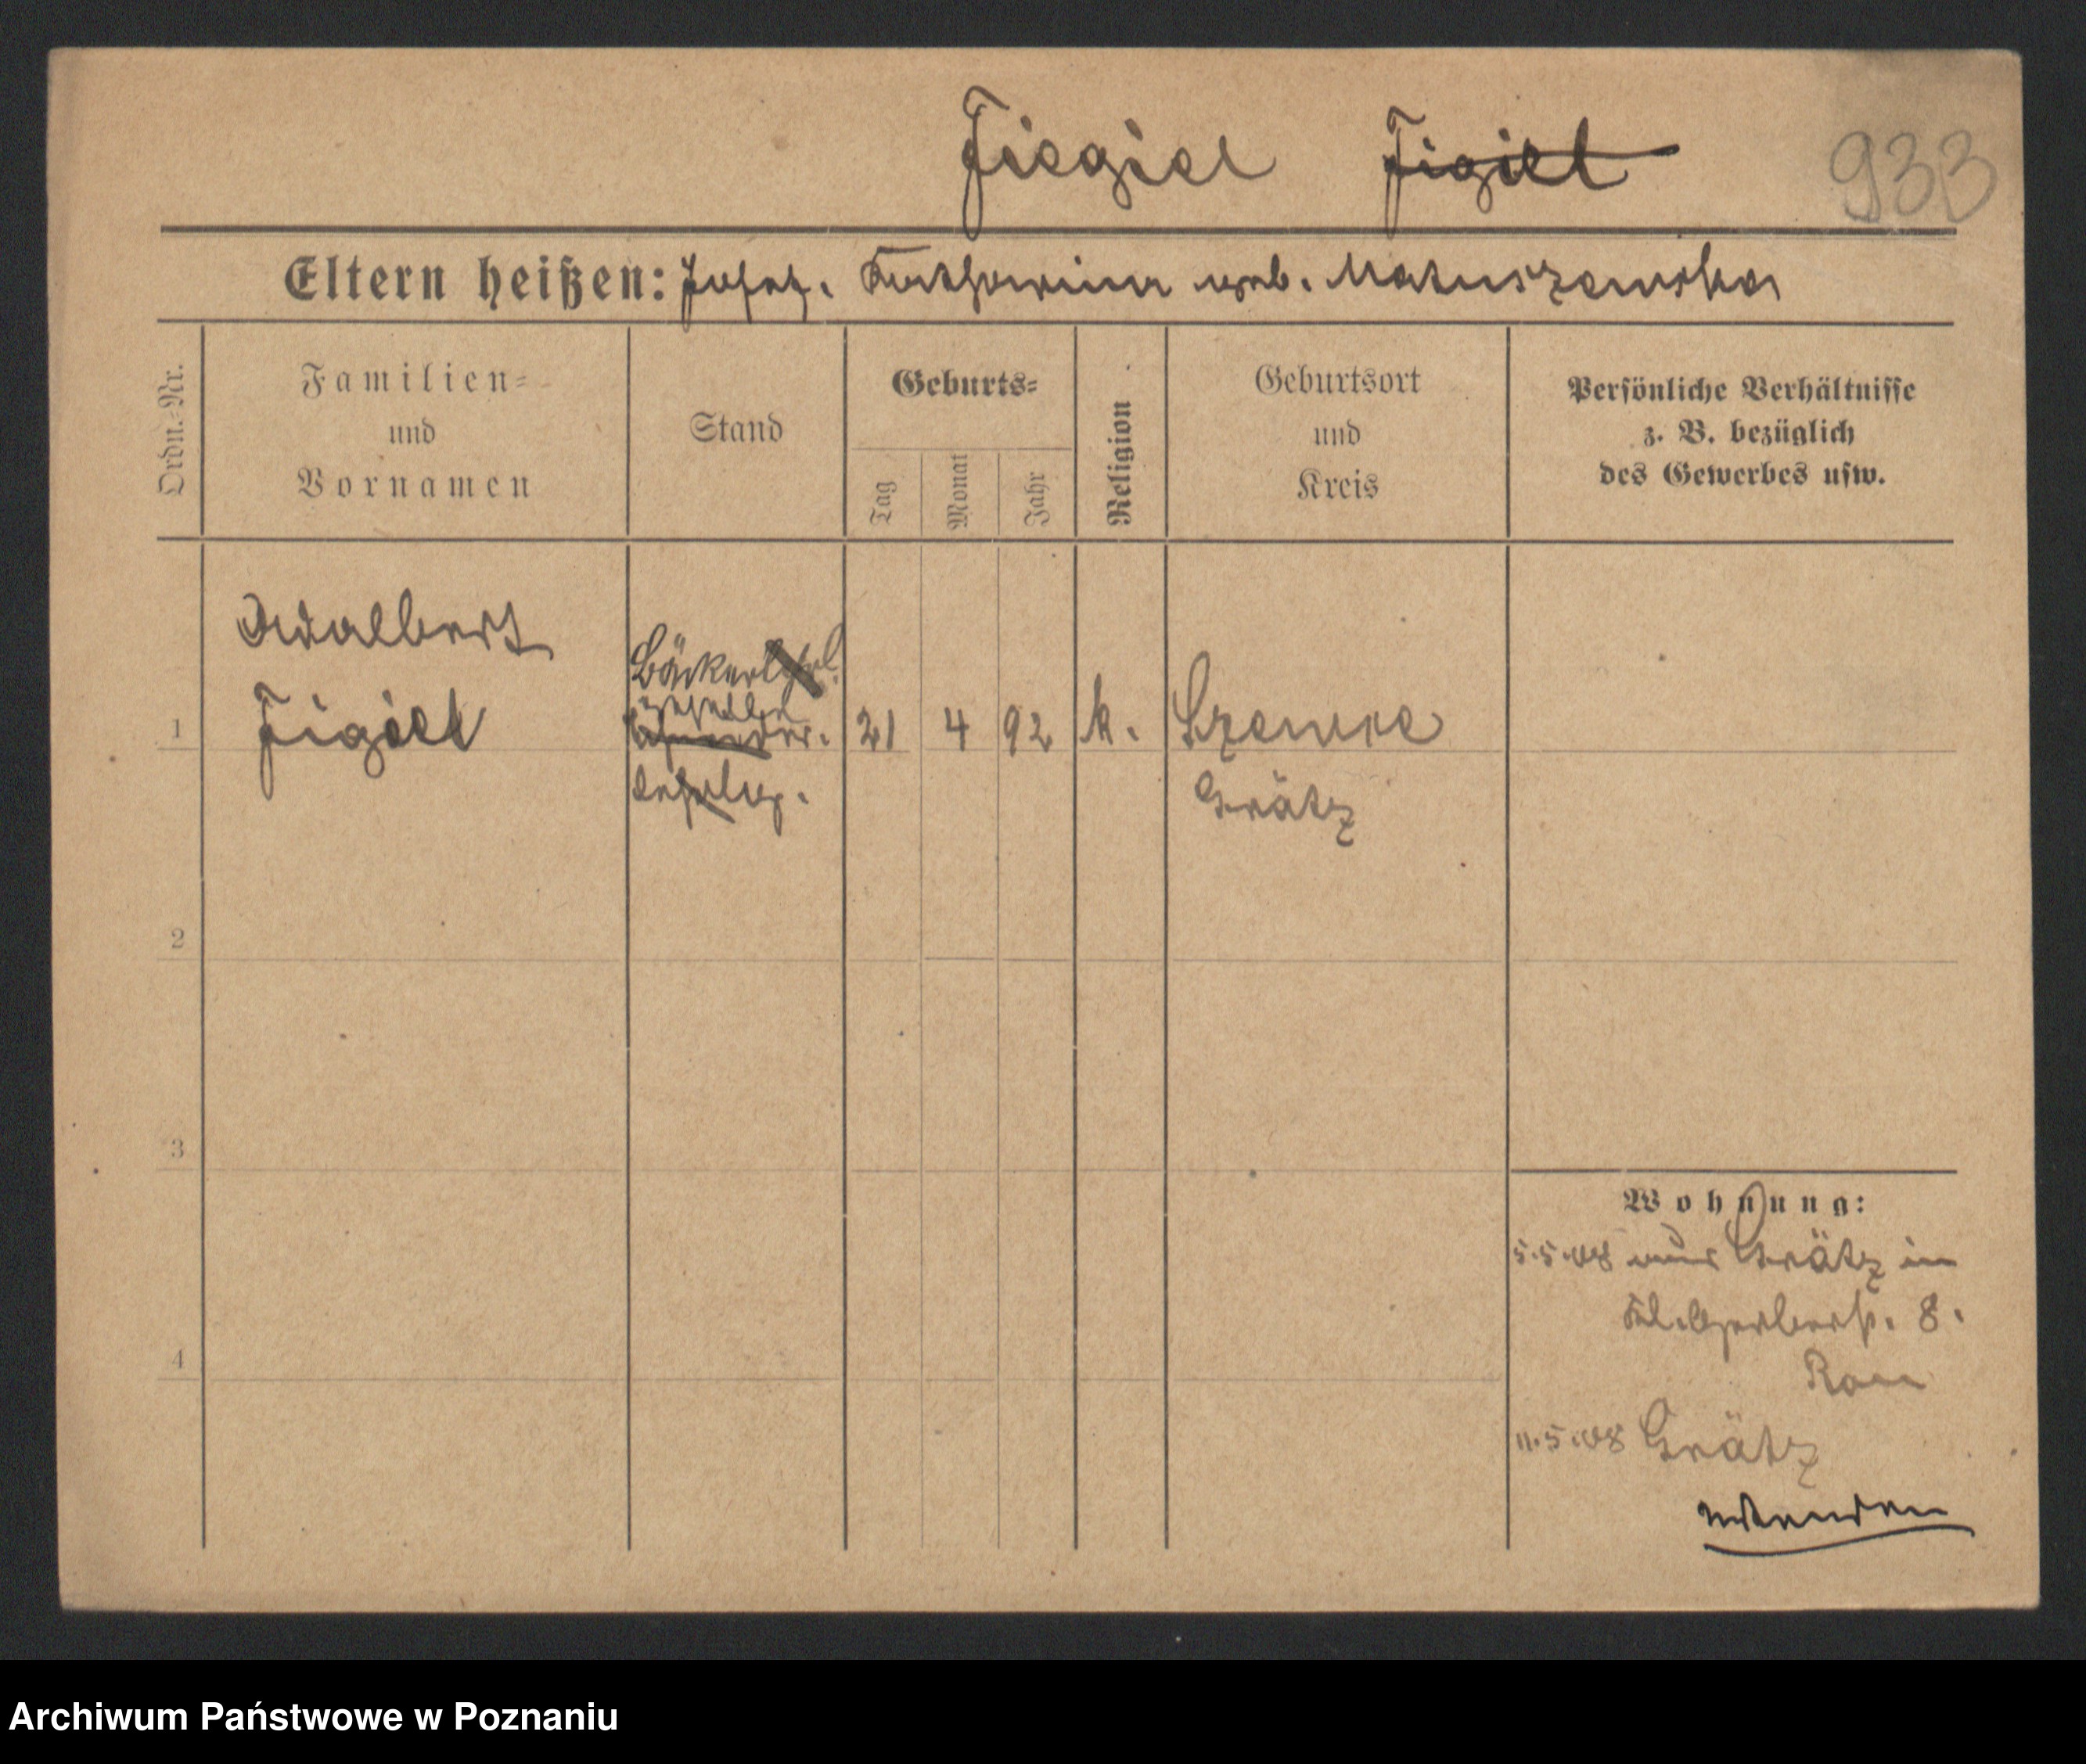 Fiegiel Figiel 933
Eltern heißen: Josef. Katharina geb. Matuszewska
Ordn.-Nr.
Familien-
und
Vornamen
Stand
Geburts-
Tag
Monat
Jahr
Religion
Geburtsort
und
Kreis
Persönliche Verhältnisse
z. B. bezüglich
des Gewerbes usw.
Adalbert
Bäcker
geselle
1 Figiel 21 4 92 k. Szewce
Grätz
2
3
4
Wohnung:
5.5.08 aus Grätz in
Kl. Gerberstr. 8.
11.5.08 Grätz
wenden
Archiwum Państwowe w Poznaniu